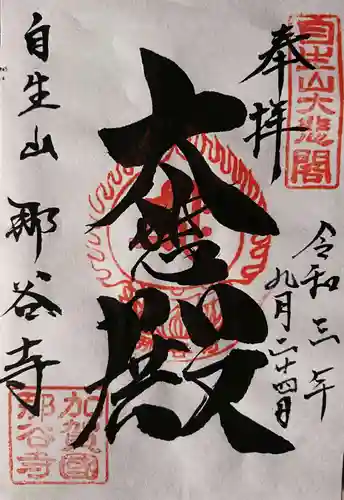 奉拝
自生山大悲閣
令和三年
九月二十四日
大悲殿
自生山
那谷寺
加賀國
那谷寺